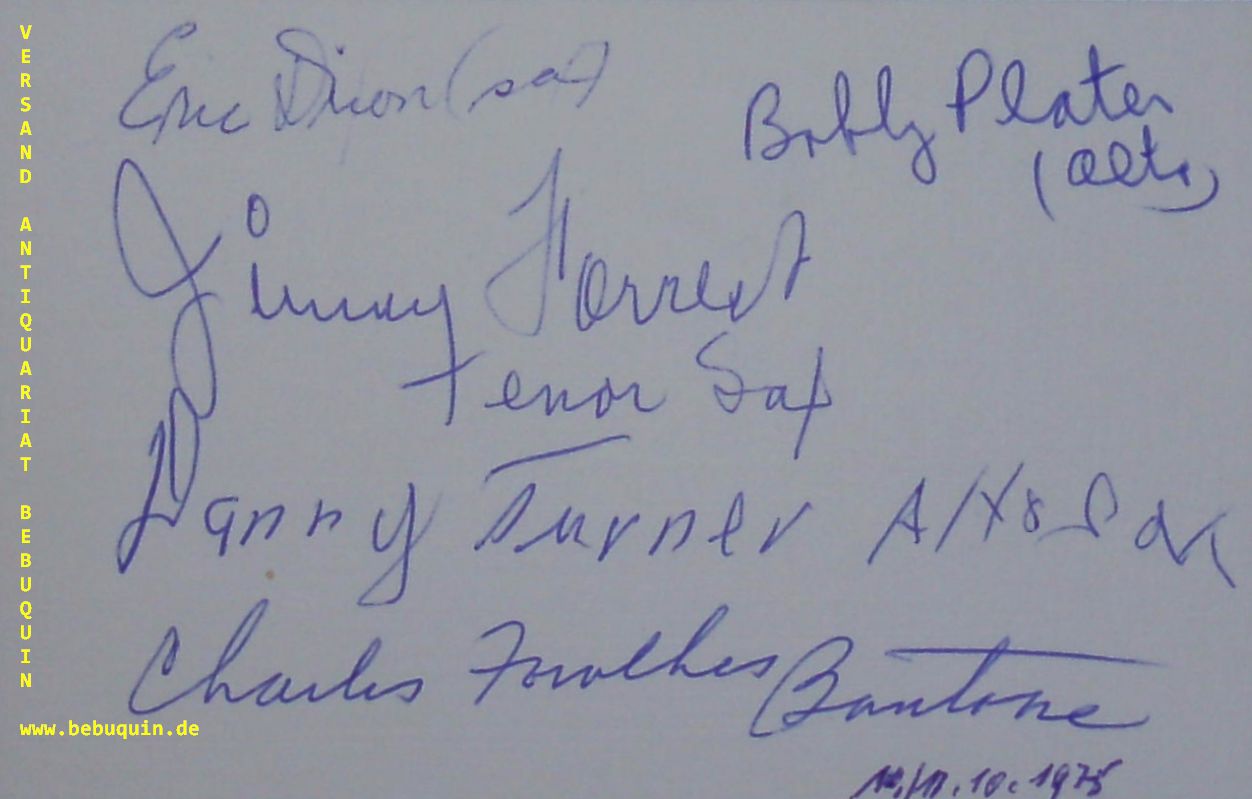 VERSAND ANTIQUARIAT BEBUQUIN
Eric Dixon (sax)
Bobby Plater
(alto)
Jimmy Forrest
Tenor Sax
Danny Turner Alto Sax
Charles Fowlkes Baritone
10.1975
www.bebuquin.de